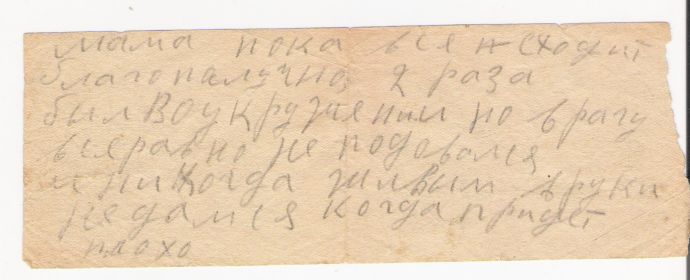 мама пока вся исходит
благополучно 2 раза
был воукружении но врагу
всяравно не подовался
и никогда живым вруки
недамся когда придет
плохо